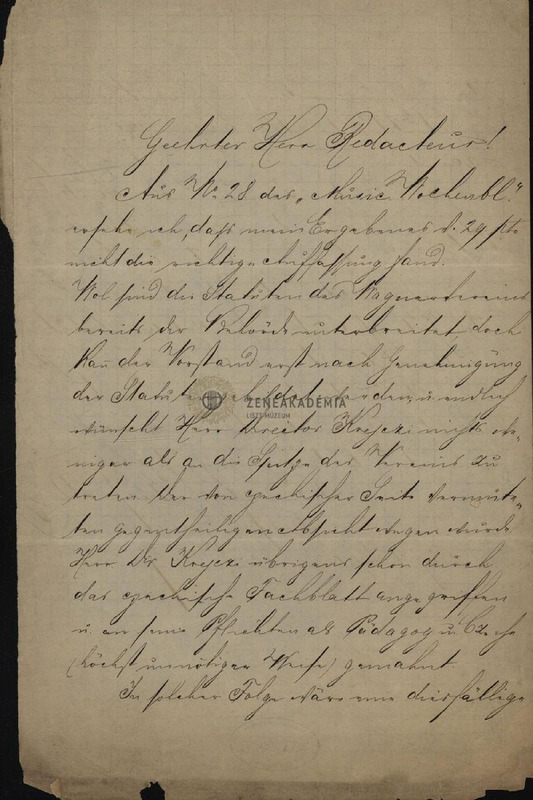 Geehrter Herr Redacteur!
Aus No 28 des „Music Wochenbl.“
ersehe ich, daß mein Ergebenes v. 29 pto
nicht die richtige Auffassung fand.
Wol sind die Statuten des Wagnervereins
bereits der Behörde unterbreitet, doch
kan̅ der Vorstand erst nach Genehmigung
der Statuten gebildet werden, u. endlich
wünscht Herr Director Krejczi nichts we-
niger als an die Spitze des Vereins zu
treten. Der von czechischer Seite vermute-
ten gegentheiligen Absicht wegen wurde
Herr Dir Krejczi übrigens schon durch
das czechische Fachblatt angegriffen
u. an seine Pflichten als Pädagog u.
(höchst unnötiger Weise) gemahnt.
In solcher Folge wäre eine diesfällige
ZENEAKADÉMIA
LISZT MÚZEUM